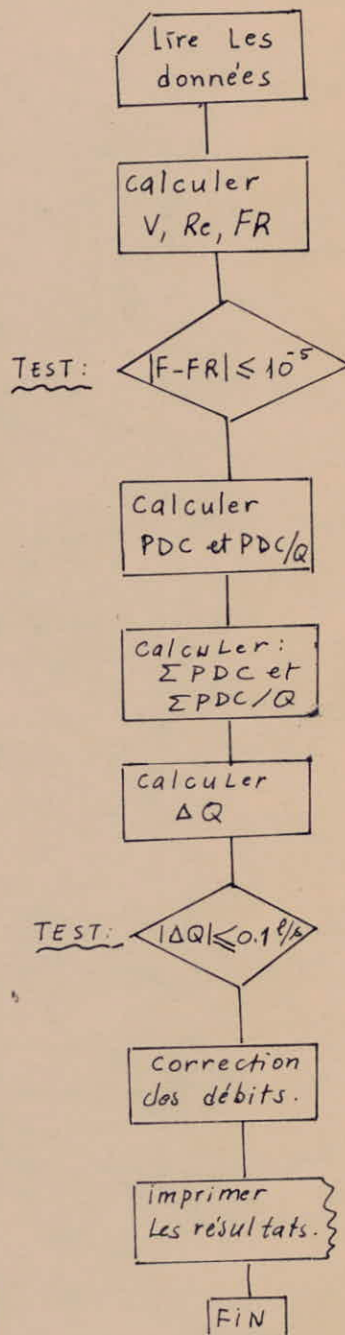 Lire Les
données
Calculer
V, Re, FR
TEST:
|F-FR| ≤ 10⁻⁵
Calculer
PDC et PDC/Q
Calculer:
Σ PDC et
Σ PDC/Q
Calculer
Δ Q
TEST:
|ΔQ| ≤ 0.1 l/s
Correction
des débits.
imprimer
Les résultats.
FiN